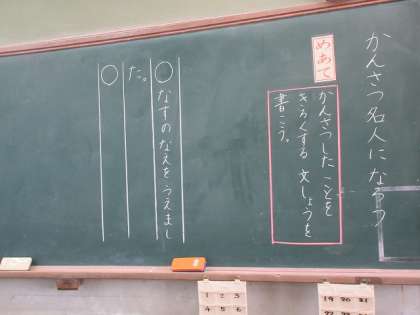 かんさつ名人になろう
めあて
かんさつしたことを
きろくする文しょうを
書こう。
○なすのなえをうえまし
た。
○
1 2 3
4 5 6
19 20 21